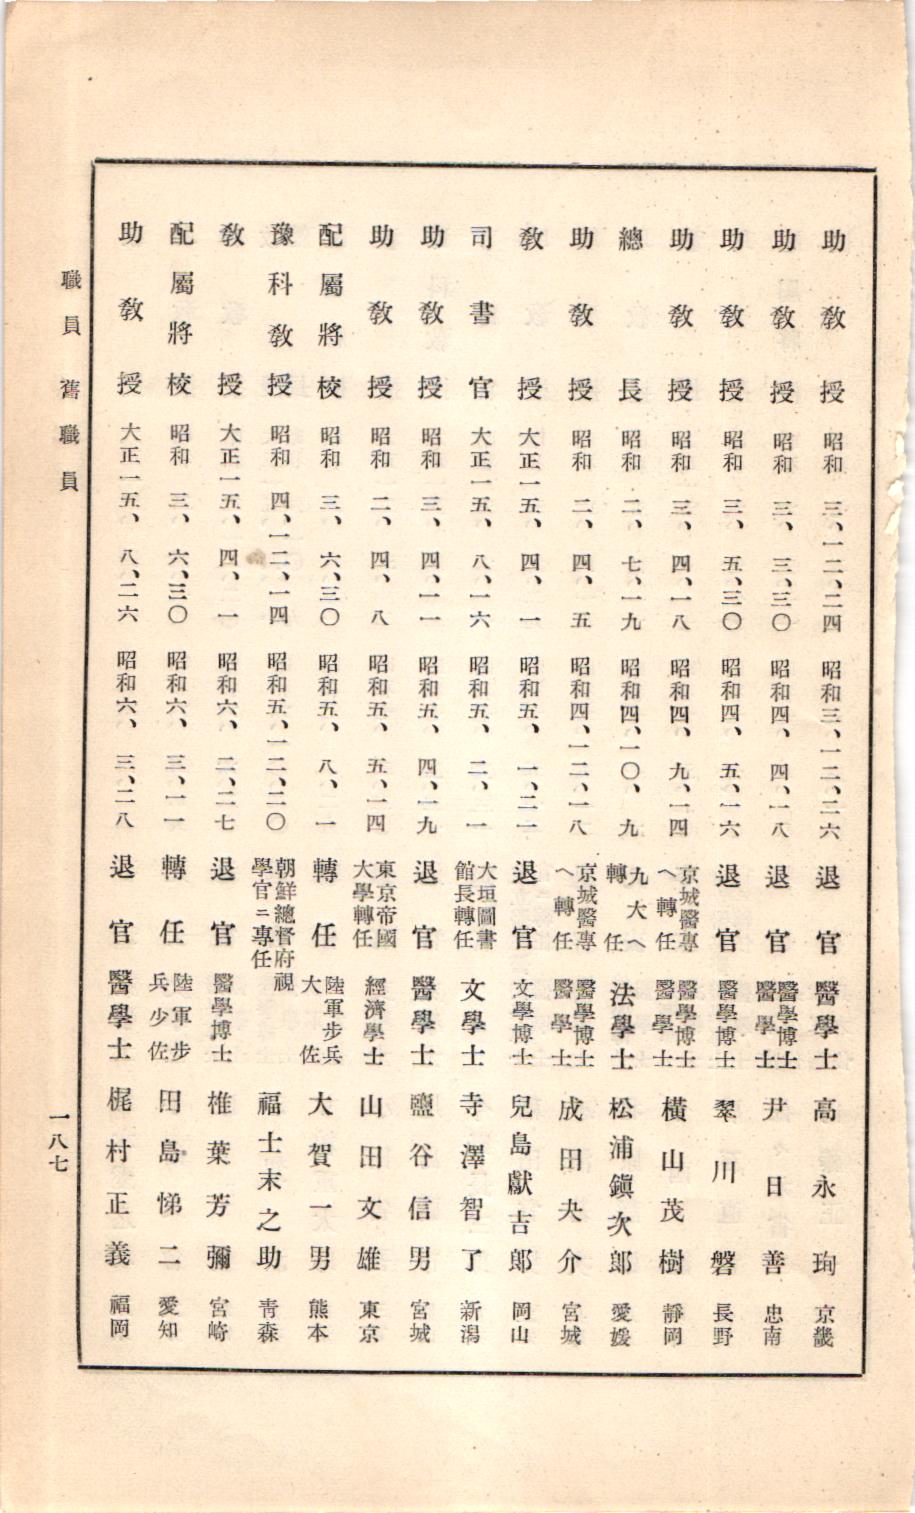 助敎授 昭和三、一二、二四 昭和三、一二、二六 退官 醫學士 高永珣 京畿
助敎授 昭和三、三、三〇 昭和四、四、一八 退官 醫學博士 醫學士 尹日善 忠南
助敎授 昭和三、五、三〇 昭和四、五、一六 退官 醫學博士 翠川磐 長野
助敎授 昭和三、四、一八 昭和四、九、一四 京城醫專へ轉任 醫學博士 醫學士 橫山茂樹 靜岡
總長 昭和二、七、一九 昭和四、一〇、九 九大へ轉任 法學士 松浦鎭次郞 愛媛
助敎授 昭和二、四、五 昭和四、一二、一八 京城醫專へ轉任 醫學博士 醫學士 成田夬介 宮城
敎授 大正一五、四、一 昭和五、一、二一 退官 文學博士 兒島獻吉郞 岡山
司書官 大正一五、八、一六 昭和五、二、一 大垣圖書館長轉任 文學士 寺澤智了 新潟
助敎授 昭和三、四、一一 昭和五、四、一九 退官 醫學士 鹽谷信男 宮城
助敎授 昭和二、四、八 昭和五、五、一四 東京帝國大學轉任 經濟學士 山田文雄 東京
配屬將校 昭和三、六、三〇 昭和五、八、一 轉任 陸軍步兵大佐 大賀一男 熊本
豫科敎授 昭和四、一二、一四 昭和五、一二、二〇 朝鮮總督府視學官ニ專任 福士末之助 靑森
敎授 大正一五、四、一 昭和六、二、二七 退官 醫學博士 椎葉芳彌 宮崎
配屬將校 昭和三、六、三〇 昭和六、三、一一 轉任 陸軍步兵少佐 田島悌二 愛知
助敎授 大正一五、八、二六 昭和六、三、二八 退官 醫學士 梶村正義 福岡
職員 舊職員
一八七